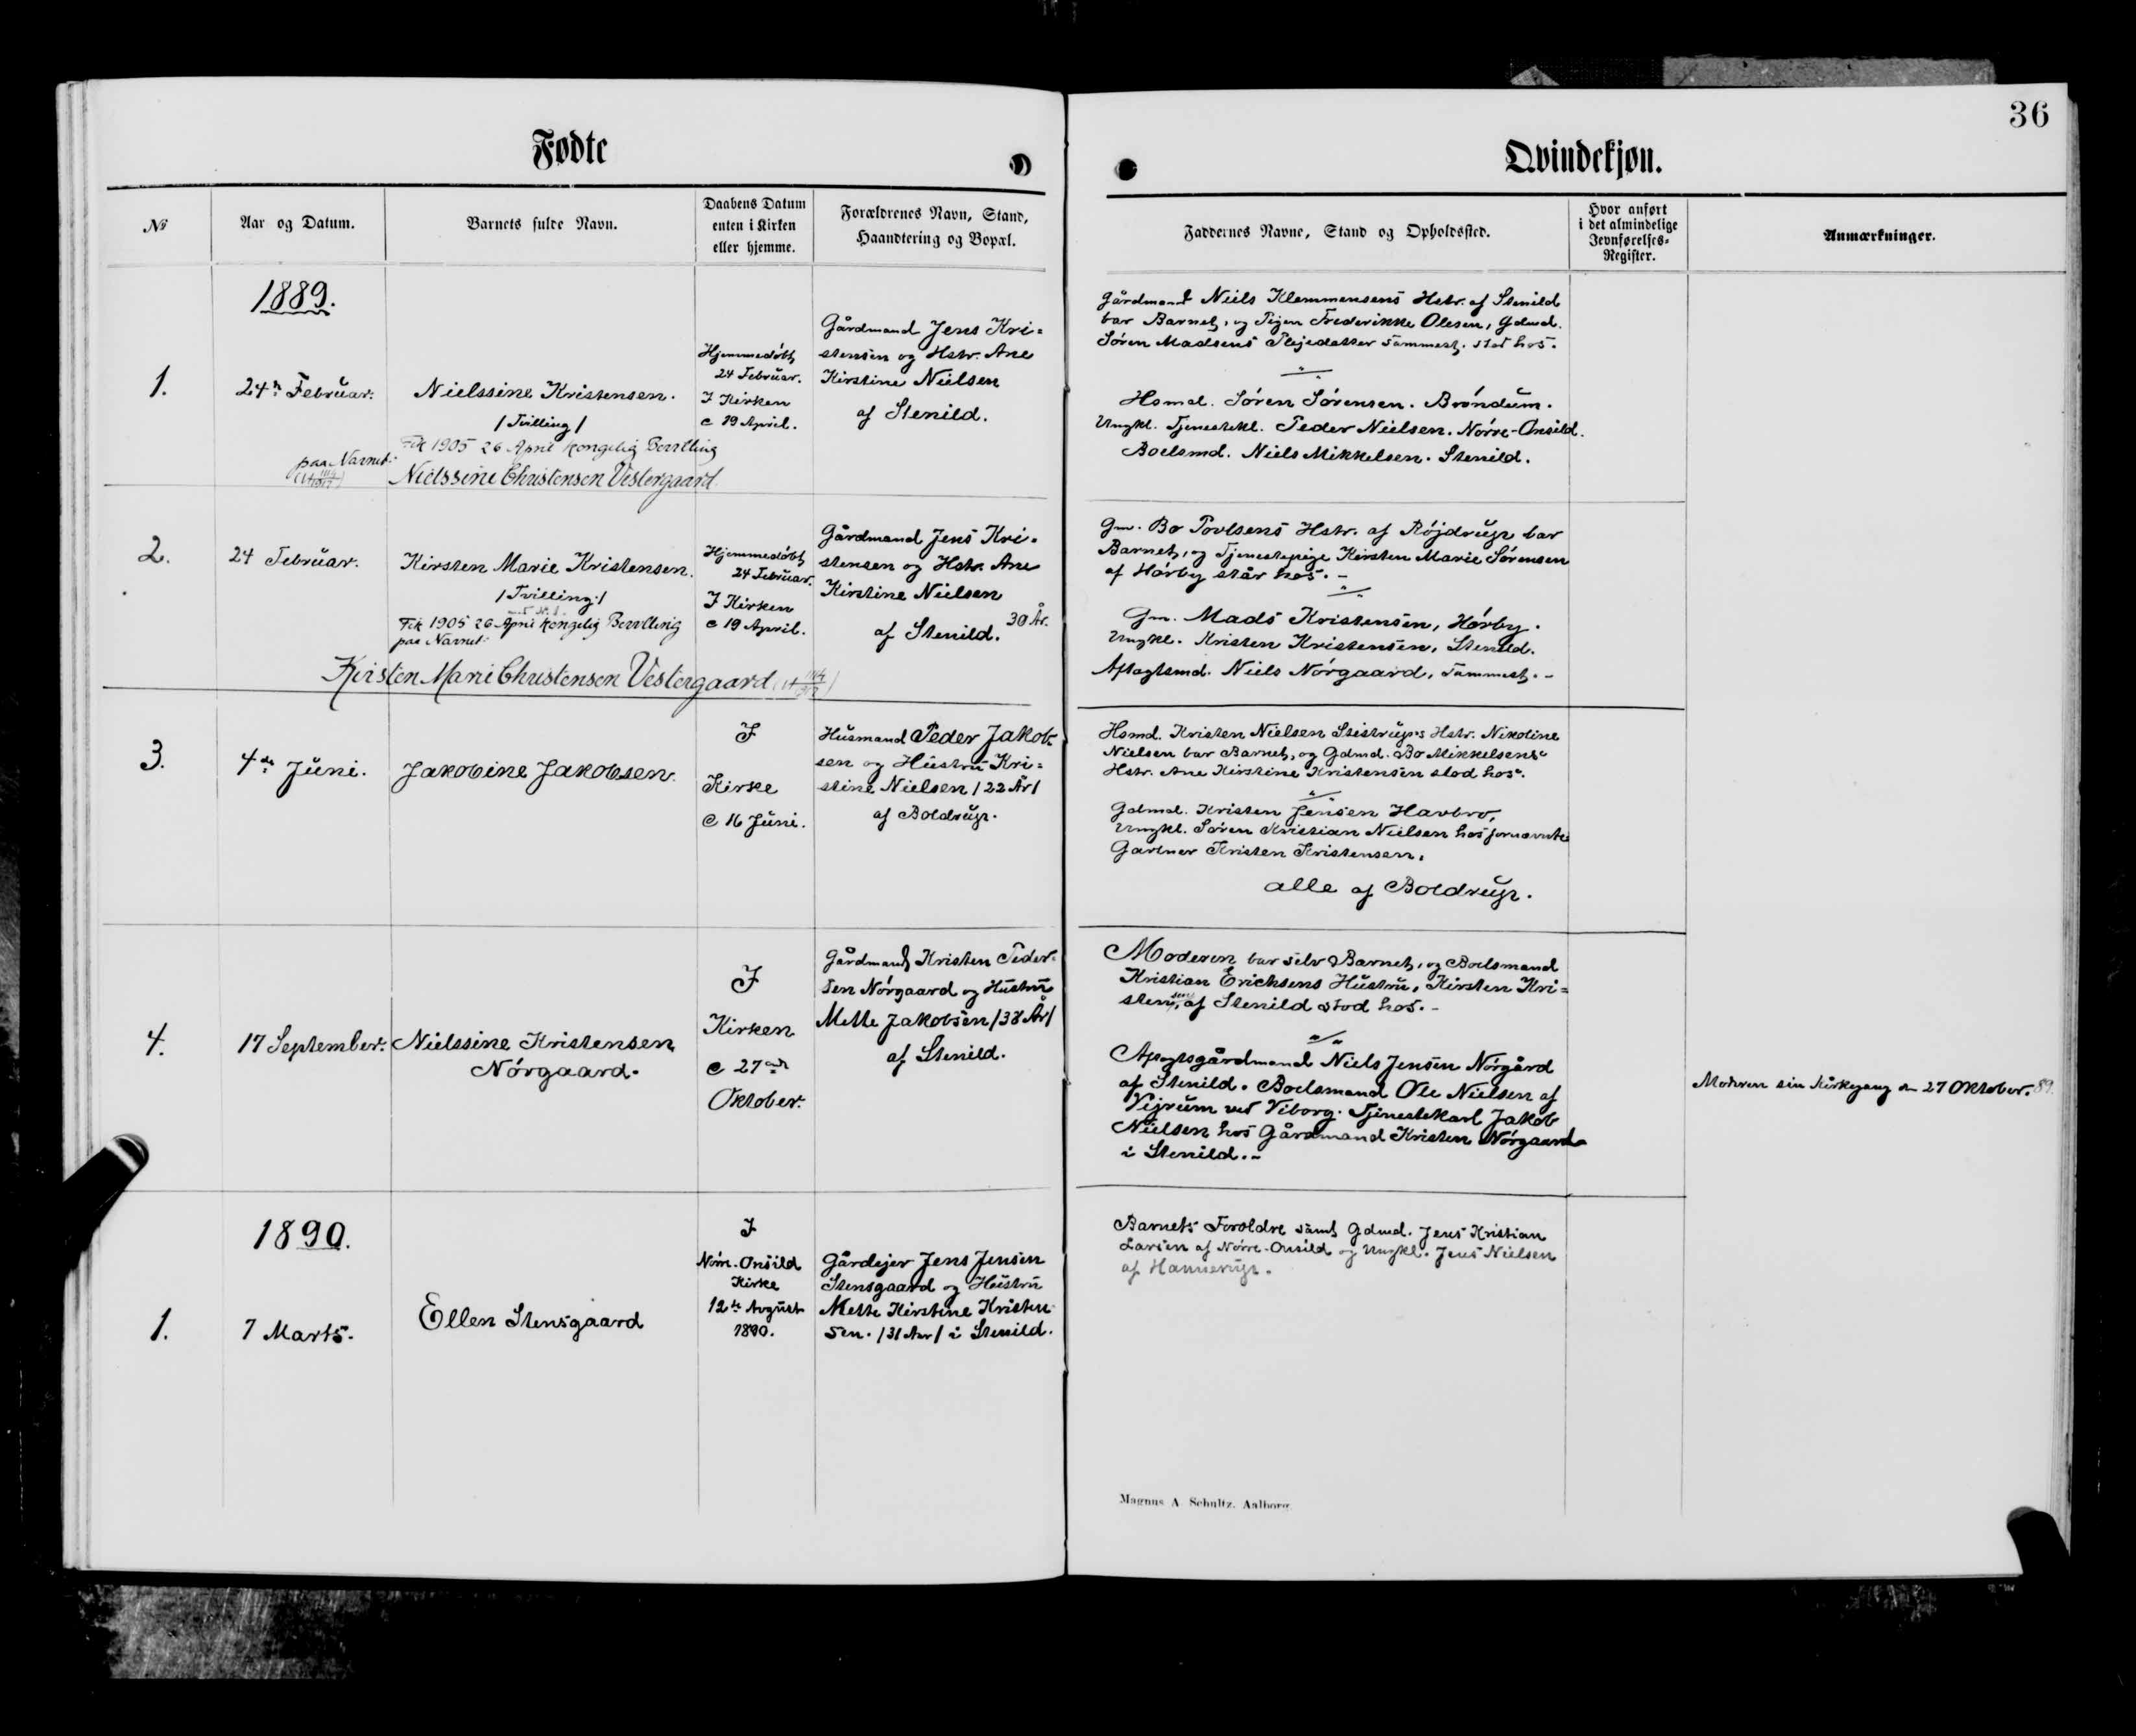 36
Fødte
Qvindekjøn.
No
Aar og Datum.
Barnets fulde Navn.
Daabens Datum
enten i Kirken
eller hjemme.
Forældrenes Navn, Stand,
Haandtering og Bopæl.
Faddernes Navne, Stand og Opholdssted.
Hvor anført
i det almindelige
Jevnførelses-
Register.
Anmærkninger.
1889.
1.
24de Februar.
Nielssine Kristensen.
/Tvilling/
Fik 1905 26 April kongelig Bevilling
paa Navnet:
Nielssine Christensen Vestergaard
Hjemmedøbt
24 Februar.
I Kirken
c 19 April.
Gårdmand Jens Kri=
stensen og Hstr. Ane
Kirstine Nielsen
af Stenild.
Gårdmand Niels Klemmensens Hstr. af Stenild
bar Barnet, og Pigen Frederikke Olesen, Gdmd.
Søren Madsens Plejedatter sammest. stod hos.
Hsmd. Søren Sørensen. Brøndum.
Ungkl. Tjenestekl. Peder Nielsen. Nørre-Onsild.
Boelsmd. Niels Mikkelsen. Stenild.
2.
24 Februar.
Kirsten Marie Kristensen.
/Tvilling/
Fik 1905 26 April kongelig Bevilling
paa Navnet:
Kirsten Marie Christensen Vestergaard
Hjemmedøbt
24 Februar.
I Kirken
c 19 April.
Gårdmand Jens Kri=
stensen og Hstr. Ane
Kirstine Nielsen
30 År.
af Stenild.
Gm. Bo Povlsens Hstr. af Røjdrup bar
Barnet, og Tjenestepige Kirsten Marie Sørensen
af Hørby står hos. -
Gm. Mads Kristensen, Hørby.
Ungkl. Kristen Kristensen, Stenild.
Aftagtsmd. Niels Nørgaard, Sammest. -
3.
4de Juni.
Jakobine Jakobsen.
I
Kirke
c 16 Juni.
Husmand Peder Jakob-
sen og Hustru Kri=
stine Nielsen /22 År/
af Boldrup.
Hsmd. Kristen Nielsen Stistrups Hstr. Nikoline
Nielsen bar Barnet, og Gdmd. Bo Mikkelsens
Hstr. Ane Kirstine Kristensen stod hos.
Gdmd. Kristen Jensen Havbro,
Ungkl. Søren Kristian Nielsen hos fornævnte
Gartner Kristen Kristensen,
alle af Boldrup.
4.
17 September.
Nielssine Kristensen
Nørgaard.
I
Kirken
c 27de
Oktober.
Gårdmand Kristen Peder-
sen Nørgaard og Hustru
Mette Jakobsen /38 År/
af Stenild.
Moderen bar selv Barnet, og Boelsmand
Kristian Erichsens Hustru, Kirsten Kri=
stensen, af Stenild stod hos. -
Aftagtsgårdmand Niels Jensen Nørgård
af Stenild. Boelsmand Ole Nielsen af
Vejrum ved Viborg. Tjenestekarl Jakob
Nielsen hos Gårdmand Kristen Nørgaard
i Stenild. -
Moderen sin Kirkegang den 27 Oktober. 89.
1890.
1.
7 Marts.
Ellen Stensgaard
I
Nørre-Onsild
Kirke
12te August
1890.
Gårdejer Jens Jensen
Stensgaard og Hustru
Mette Kirstine Kristen-
sen. /31 Aar/ i Stenild.
Barnets Forældre samt Gdmd. Jens Kristian
Larsen af Nørre-Onsild og Ungkl. Jens Nielsen
af Hannerup.
Magnus A. Schultz. Aalborg.